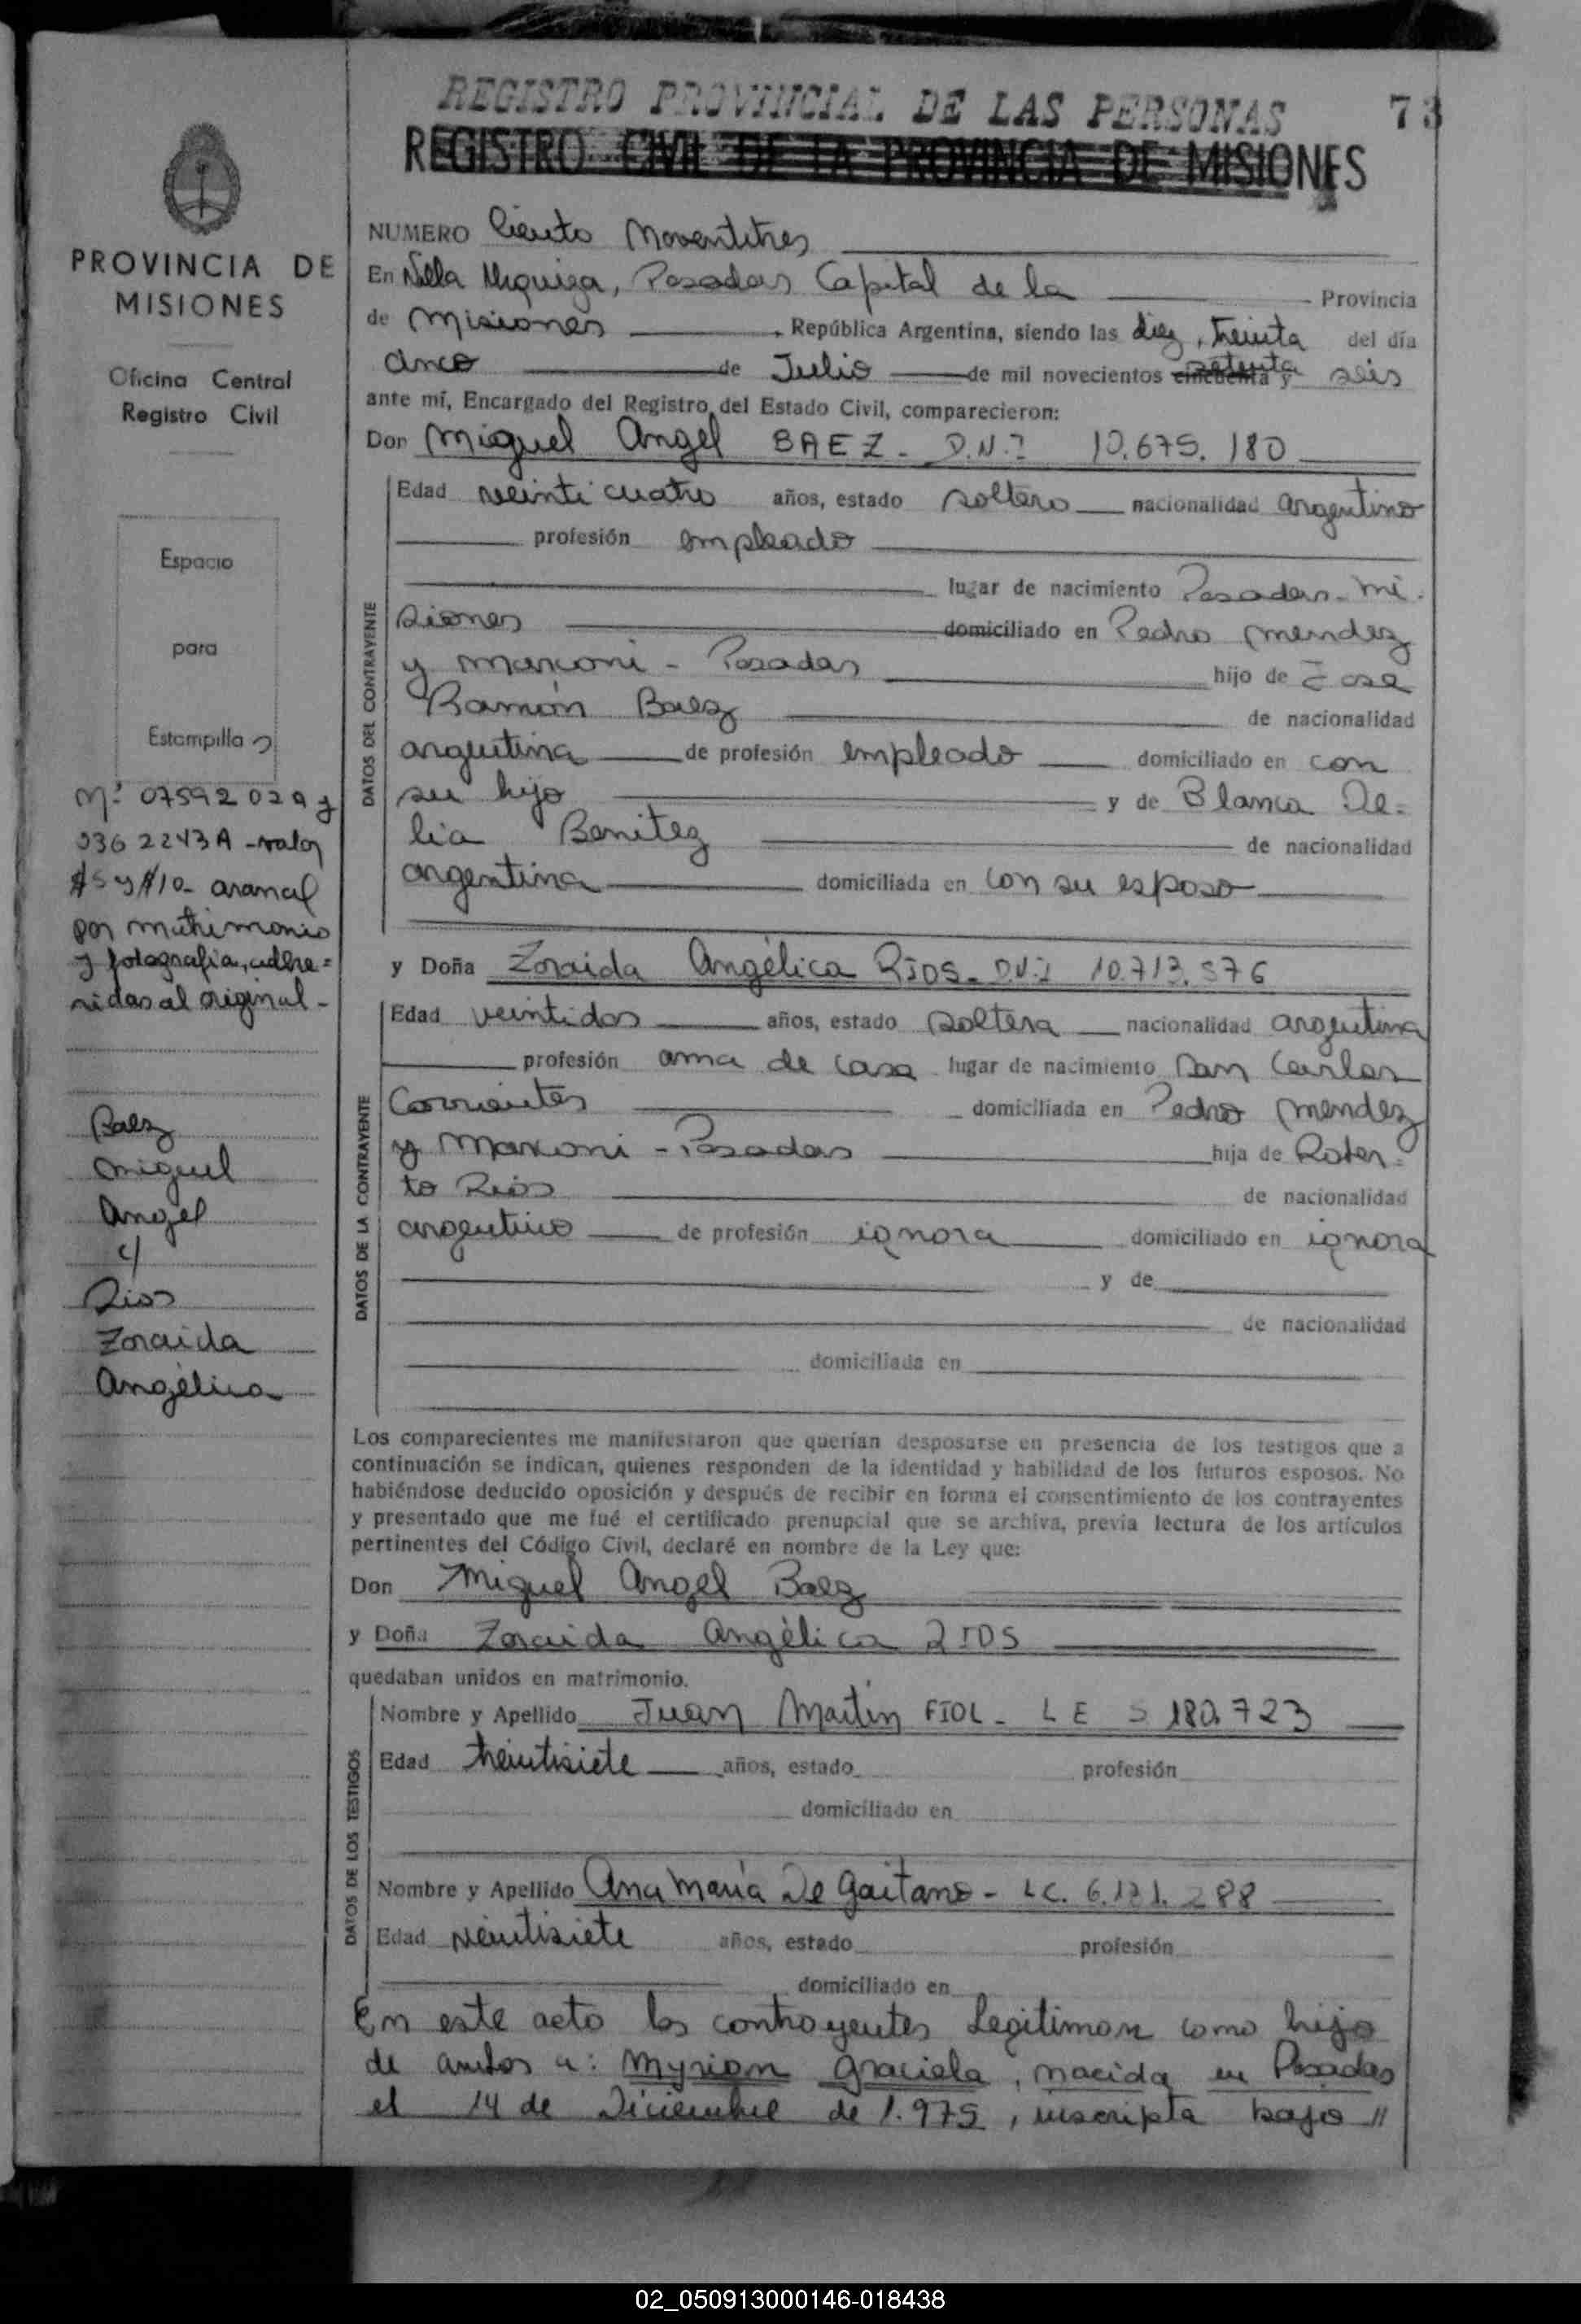 REGISTRO PROVINCIAL DE LAS PERSONAS 73
REGISTRO CIVIL DE LA PROVINCIA DE MISIONES
PROVINCIA DE
MISIONES
Oficina Central
Registro Civil
Espacio
para
Estampilla
Nº 07592029 y
0362243A - valor
$5 y $10 - arancel
por matrimonio
y fotografia, adhe=
ridas al original -
Baez
Miguel
Angel
c/
Rios
Zoraida
Angélica
NUMERO Ciento Noventitres
En Villa Urquiza, Posadas Capital de la Provincia
de Misiones República Argentina, siendo las diez, treinta del día
cinco de Julio de mil novecientos cincuenta setenta y seis
ante mí, Encargado del Registro del Estado Civil, comparecieron:
Don Miguel Angel BAEZ - D.N.I 10.675.180
DATOS DEL CONTRAYENTE
Edad veinticuatro años, estado soltero nacionalidad argentino
profesión empleado
lugar de nacimiento Posadas - Mi-
siones domiciliado en Pedro Mendez
y Marconi - Posadas hijo de José
Ramón Baez de nacionalidad
argentina de profesión empleado domiciliado en con
su hijo y de Blanca De=
lia Benitez de nacionalidad
argentina domiciliada en con su esposo
y Doña Zoraida Angélica RIOS - D.N.I 10.713.576
DATOS DE LA CONTRAYENTE
Edad veintidos años, estado soltera nacionalidad argentina
profesión ama de casa lugar de nacimiento San Carlos
Corrientes domiciliada en Pedro Mendez
y Marconi - Posadas hija de Rober=
to Rios de nacionalidad
argentino de profesión ignora domiciliado en ignora
y de
de nacionalidad
domiciliada en
Los comparecientes me manifestaron que querían desposarse en presencia de los testigos que a
continuación se indican, quienes responden de la identidad y habilidad de los futuros esposos. No
habiéndose deducido oposición y después de recibir en forma el consentimiento de los contrayentes
y presentado que me fué el certificado prenupcial que se archiva, previa lectura de los artículos
pertinentes del Código Civil, declaré en nombre de la Ley que:
Don Miguel Angel Baez
y Doña Zoraida Angélica RIOS
quedaban unidos en matrimonio.
DATOS DE LOS TESTIGOS
Nombre y Apellido Juan Martin FIOL - L E 5 180.723
Edad treintisiete años, estado profesión
domiciliado en
Nombre y Apellido Ana María De Gaitano - LC. 6.131.288
Edad veintisiete años, estado profesión
domiciliado en
En este acto los contrayentes Legitiman como hijo
de ambos a: Myrian Graciela, nacida en Posadas
el 14 de Diciembre de 1.975, inscripta bajo //
02_050913000146-018438